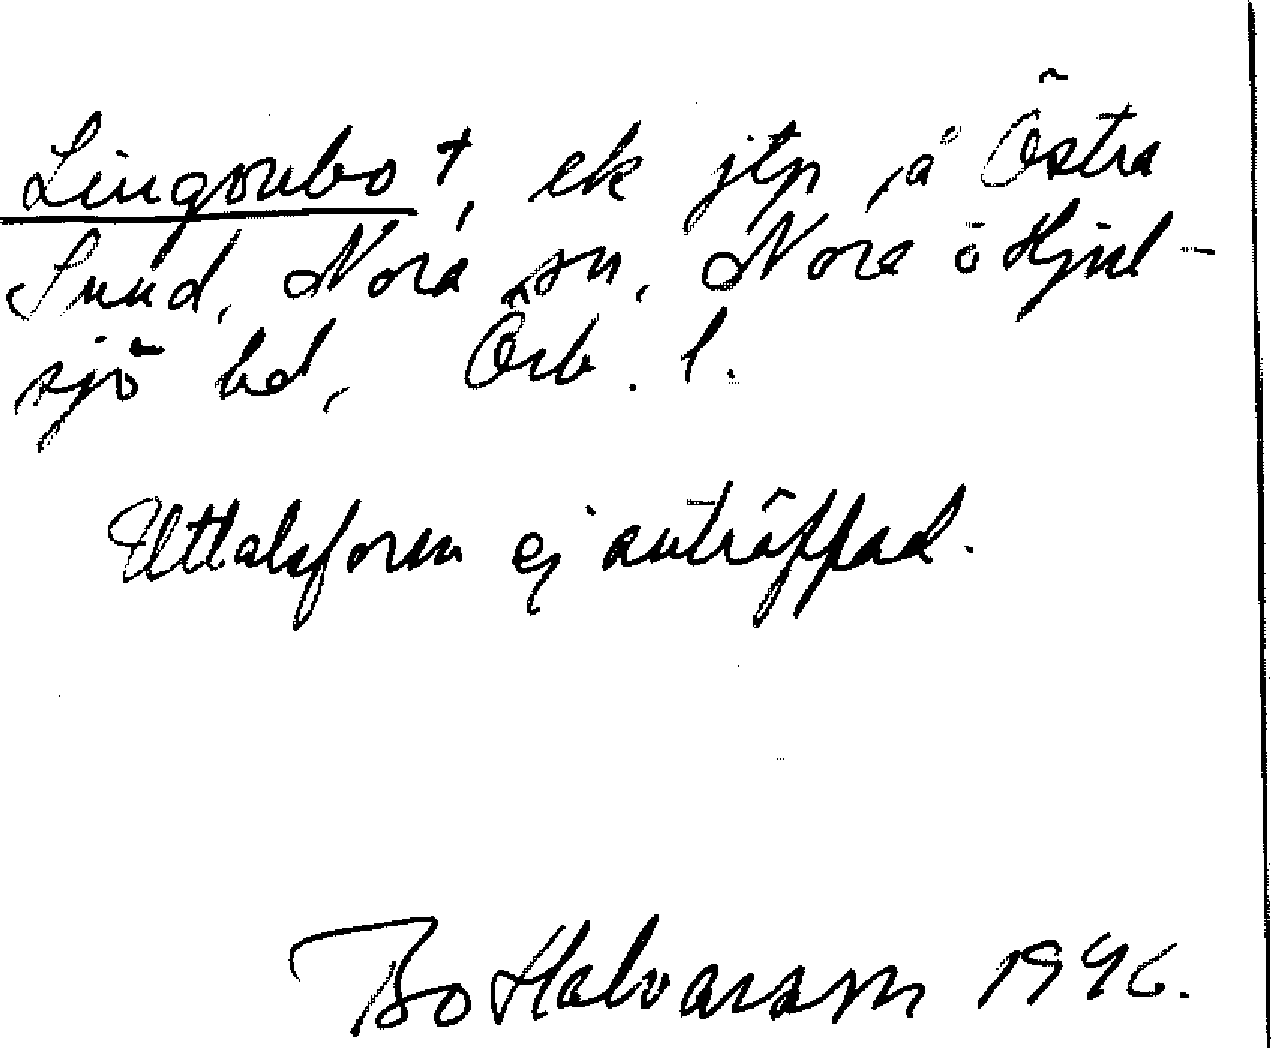 Lingonbo †, ek jtp å Östra
Sund, Nora sn, Nora o Hjul-
sjö hd, Örb. l.
Uttalsform ej anträffad.
Bo Halvarsson 1996.